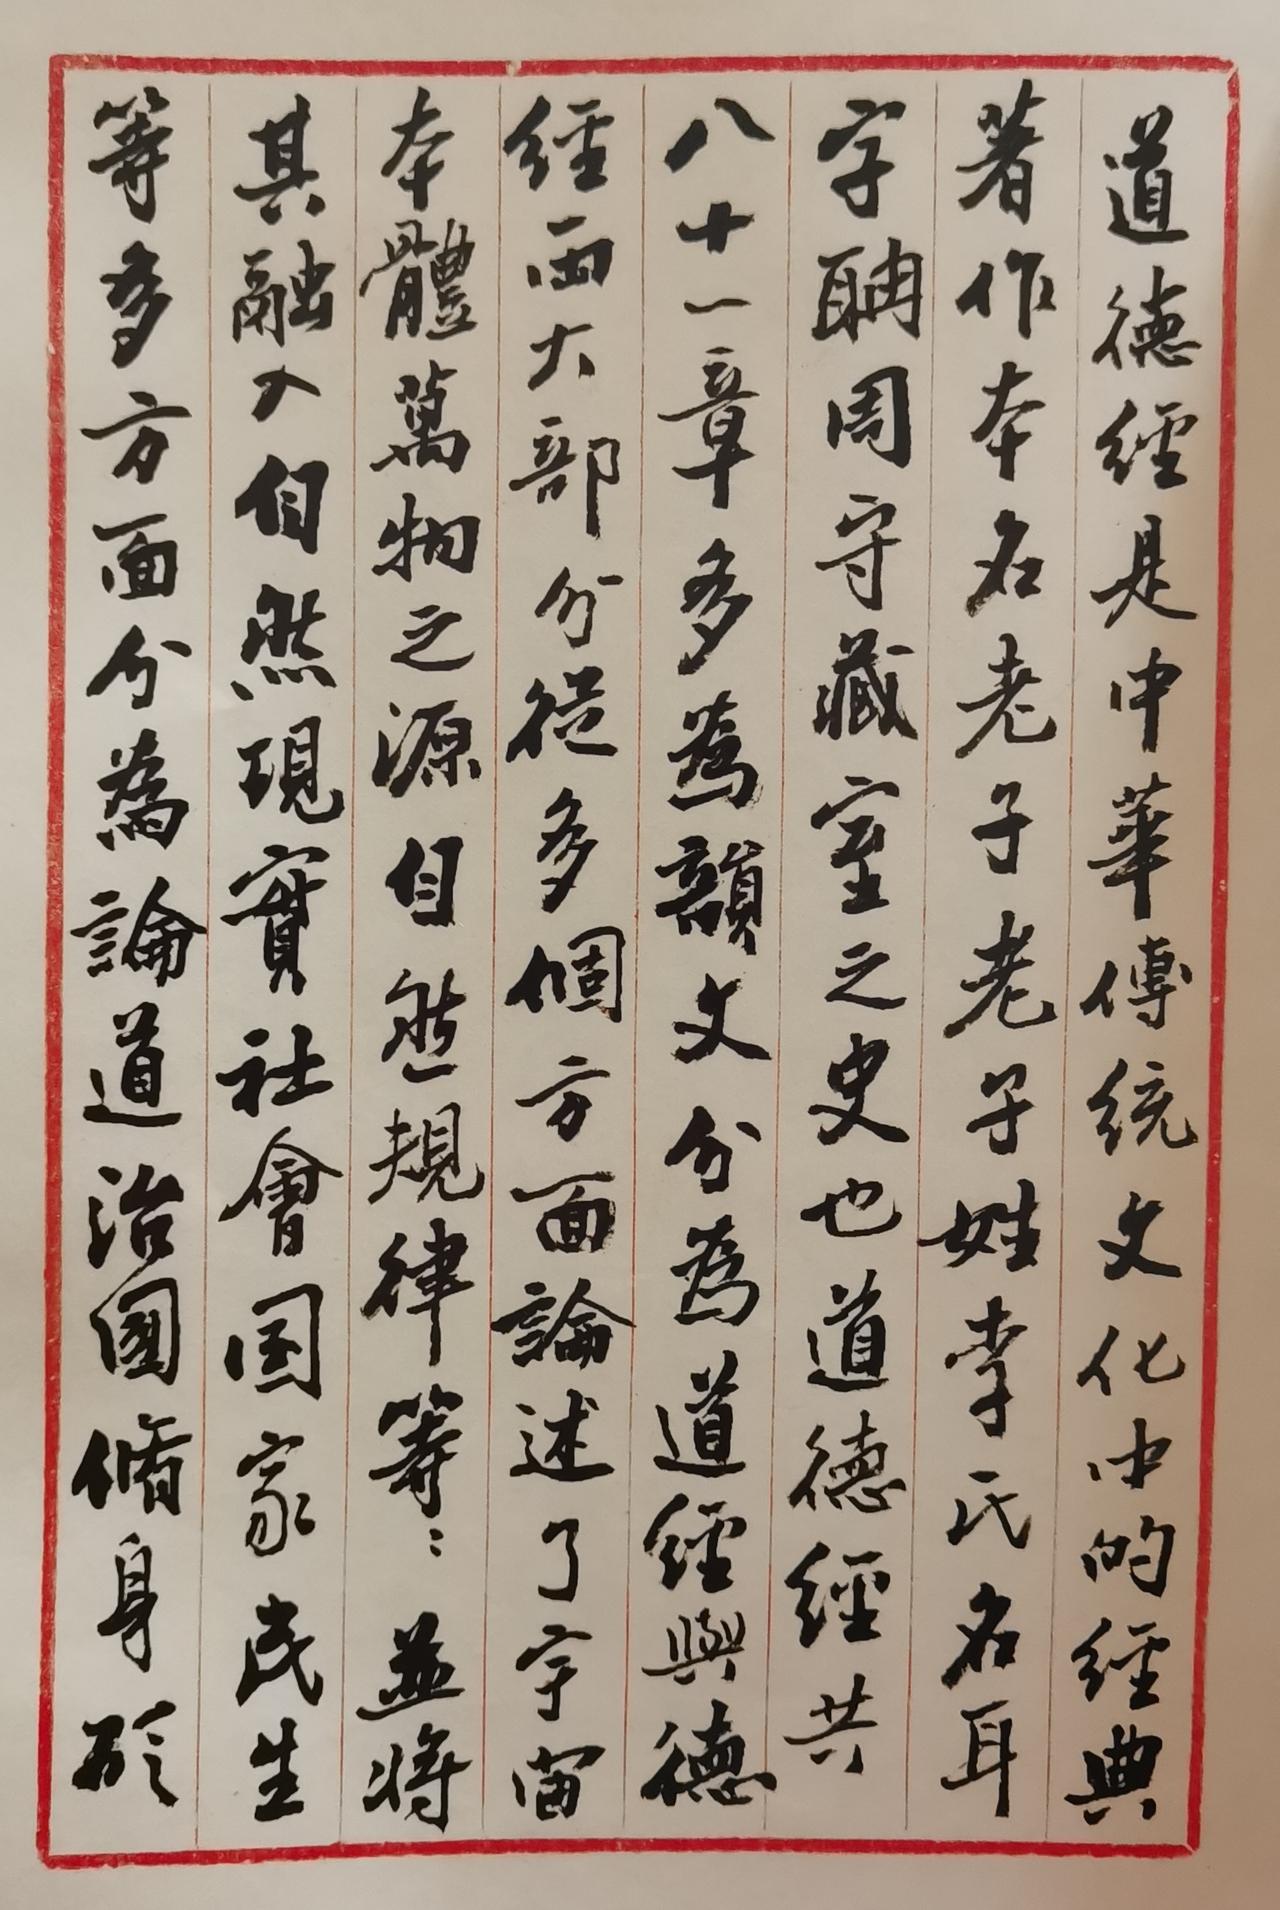 道德經是中華傳統文化中的經典
著作本名老子老子姓李氏名耳
字聃周守藏室之史也道德經共
八十一章多為韻文分為道經與德
經两大部分從多個方面論述了宇宙
本體萬物之源自然規律等等並將
其融入自然現實社會国家民生
等多方面分為論道治國脩身